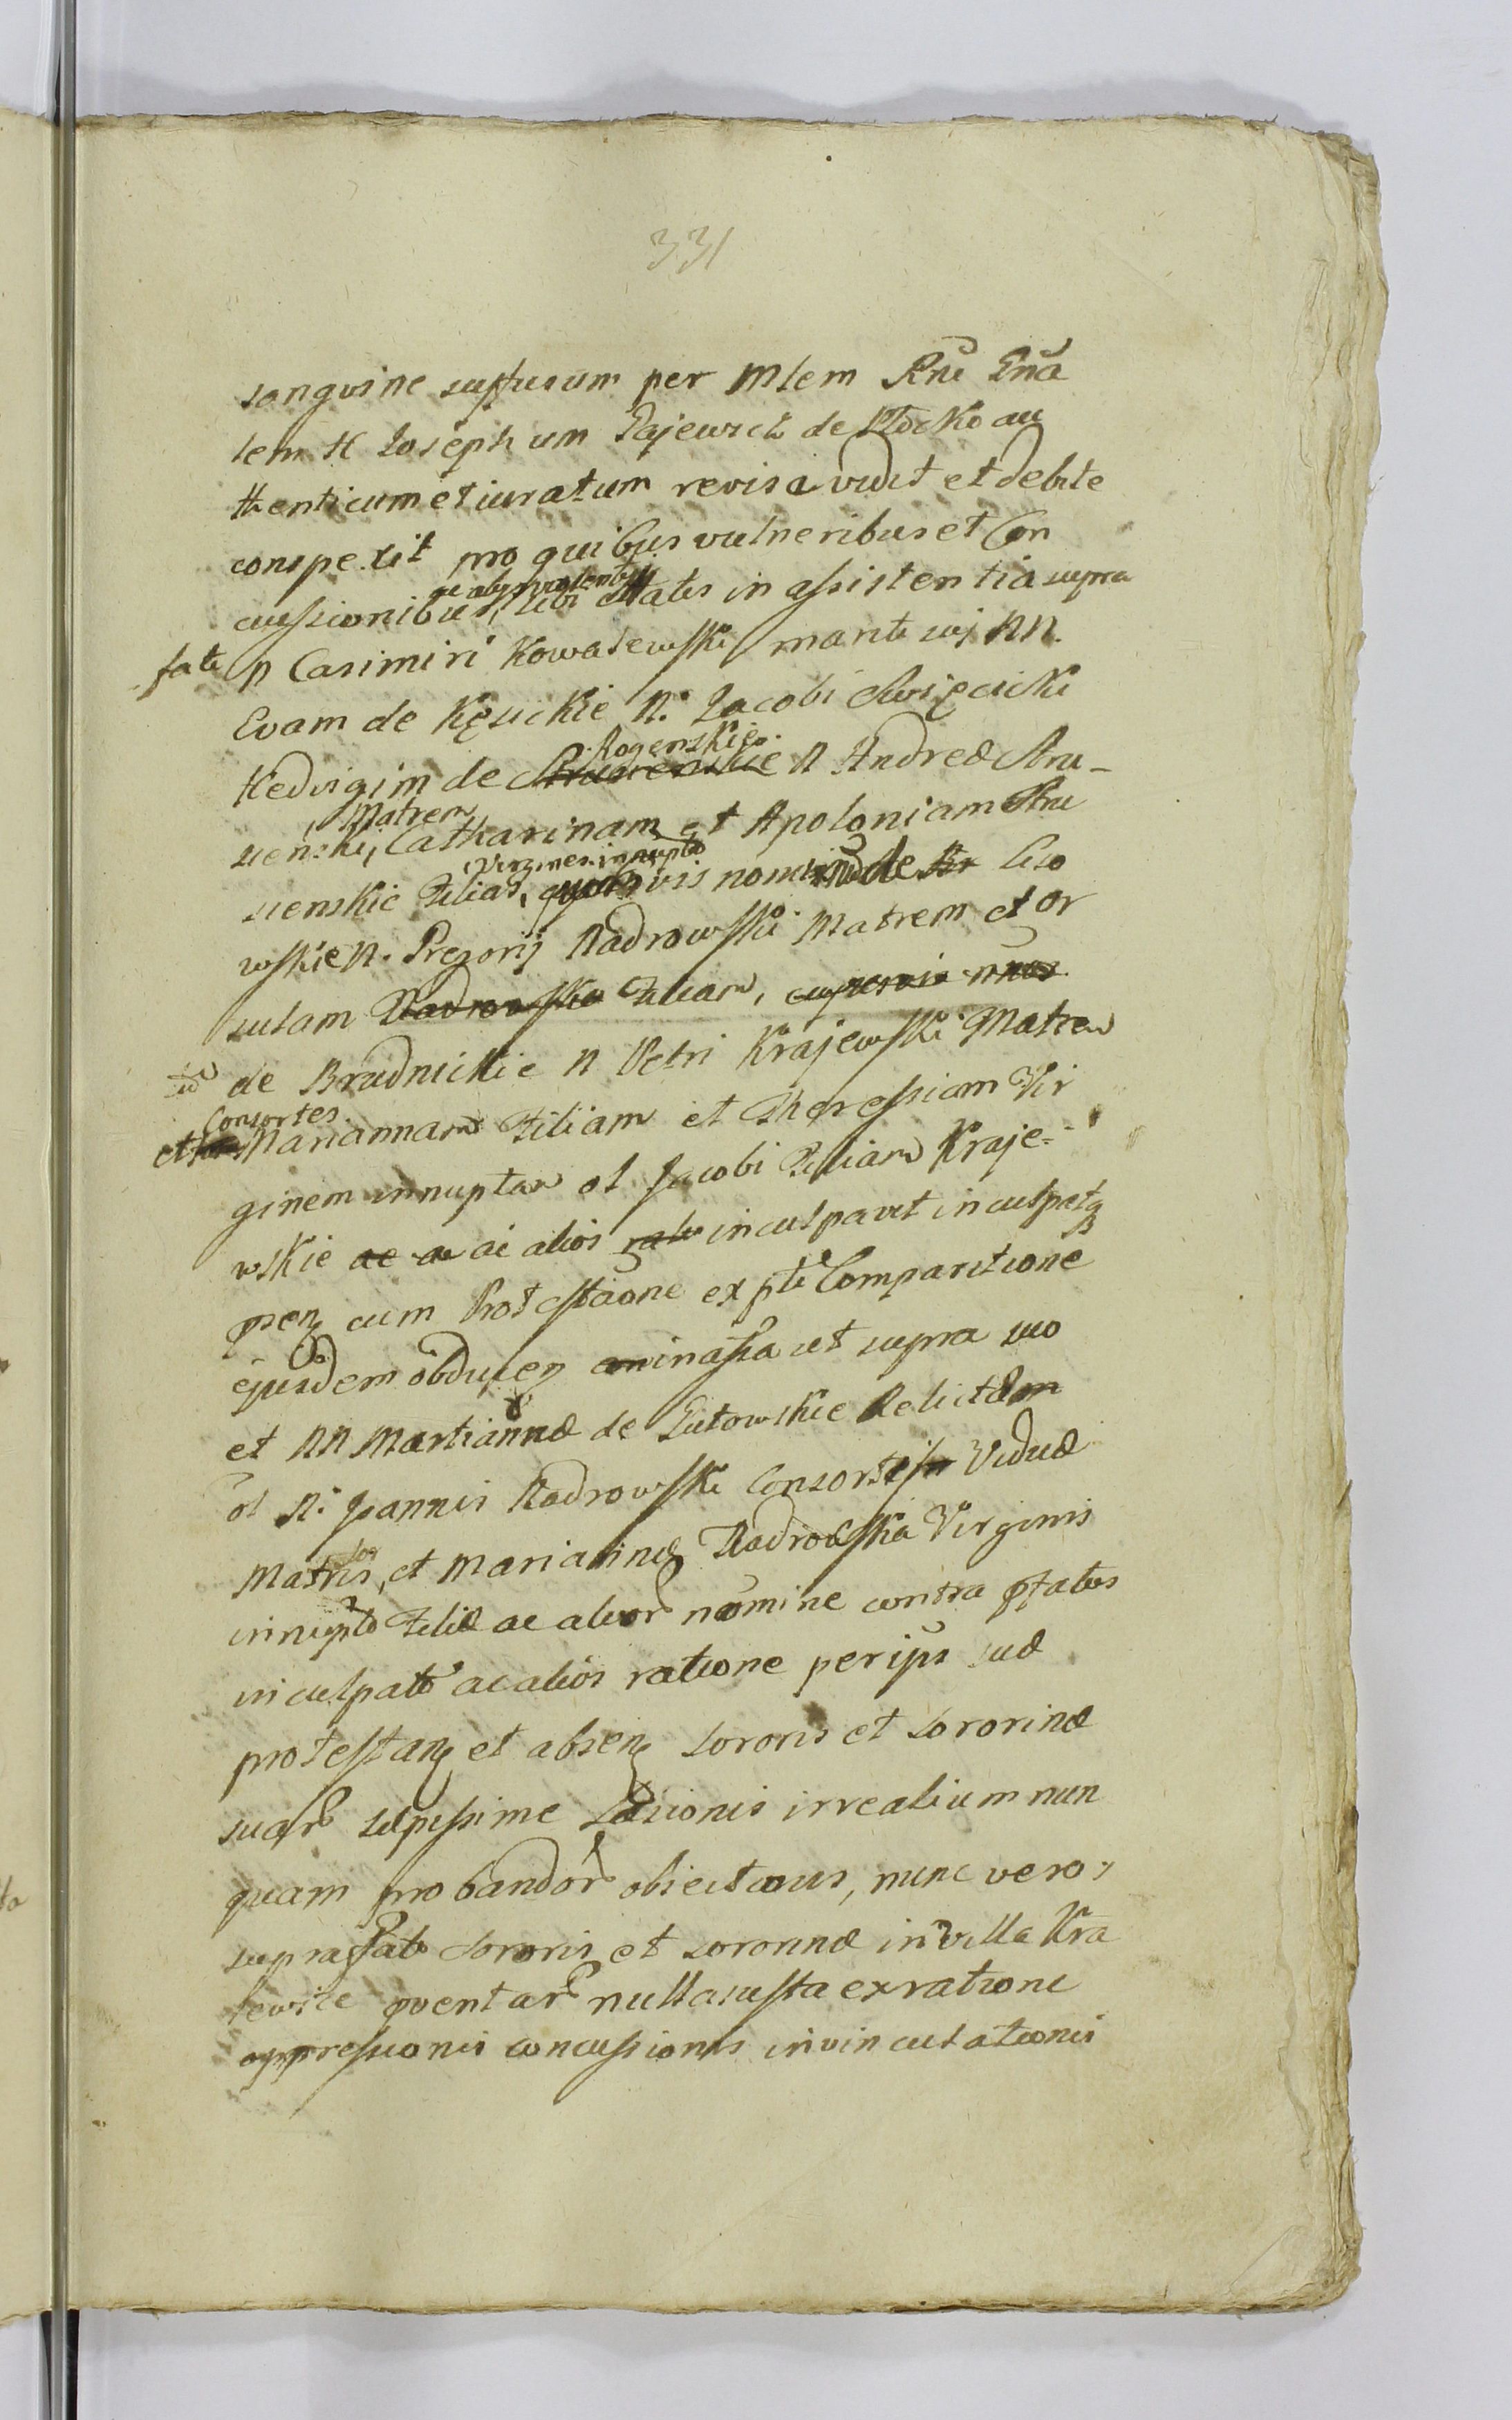 331
sangvine suffusum per Mlem Rnu Gna
lem H Josephum Gajewicz de Płocko au
thenticum et iuratum revisa vidit et debite
conspexit pro quibus vulneribus et Con
cussionibus, ac alys violentys sibi illatis in assistentia supra
fati n Casimiri Kowalewski mariti sui NN.
Evam de Kęsickie N. Jacobi Swięcicki
Hedvigim de Rogenskie N Andreæ Stru-
sienski, Matrem Catharinam et Apoloniam Stru
sienskie Filias, Virgines innuptas quarvis nomine de Liso
wskie N. Gregorij Nadrowski Matrem et Or
sulam Nadrowska Filiam,
de Brudnickie N Petri Krajewski Matrem
Consortes
et Mariannam Filiam et Theressiam Vir
ginem innuptam ol Jacobi Filiam Kraje-
wskie ac alios inculpavit inculpatq
psen cum Protestaone ex pte Comparitione
ejusdem obducen in assa ut supra suo
et NN Martiannæ de Gutowskie Relictæ
ol N. Joannis Nadrowski Consortis Viduæ
Matris, et Mariannæ Nadrowska Virginis
innuptæ Filiæ ac alior nomine contra pfatos
inculpatos ac alios ratione per ipsos suæ
protestan et absen sororis et sororinæ
suar sæpissime Læsionis irrealium nun
quam probandor obiectionis, nunc vero
suprafatæ sororis et sororinæ in villa Kra
jewice pventar nulla iusta ex ratione
oppressionis concussionis invinculationis